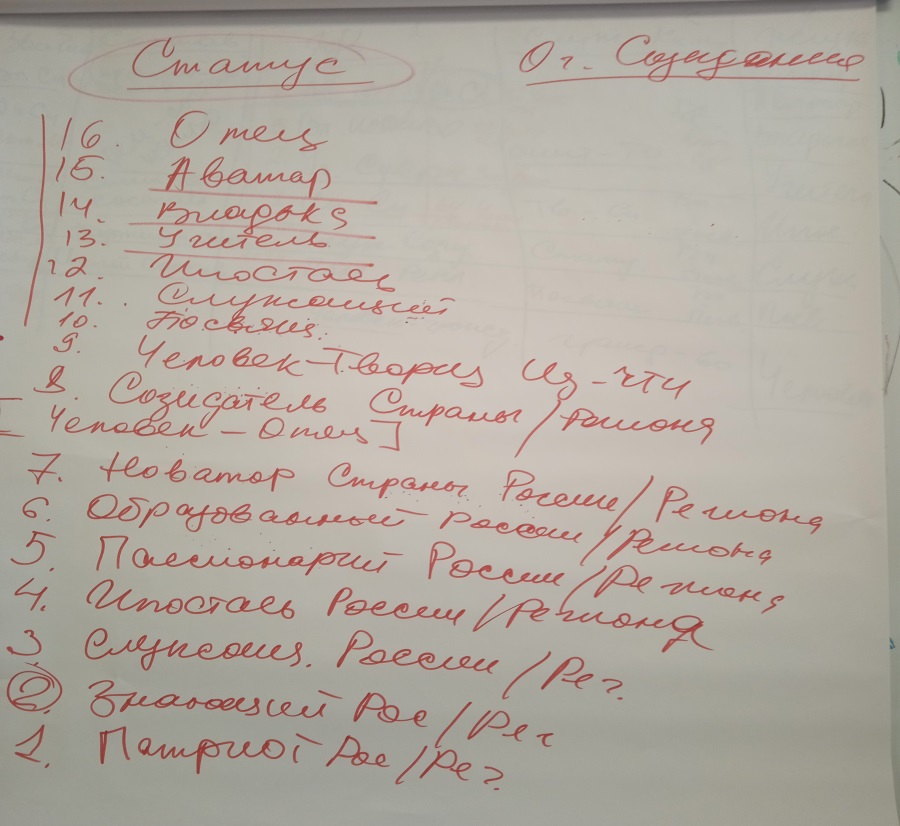 Статус
Ог. Созидания
16. Отец
15. Аватар
14. Владыка
13. Учитель
12. Ипостась
11. Служащий
10. Посвящ.
9. Человек-Творец Из-ЧТИ
8. Созидатель Страны / Региона
[Человек - Отец]
7. Новатор Страны России / Региона
6. Образованный России / Региона
5. Пассионарий России / Региона
4. Ипостась России / Региона
3 Служащ. России / Рег.
2. Знающий Рос / Рег
1. Патриот Рос / Рег.